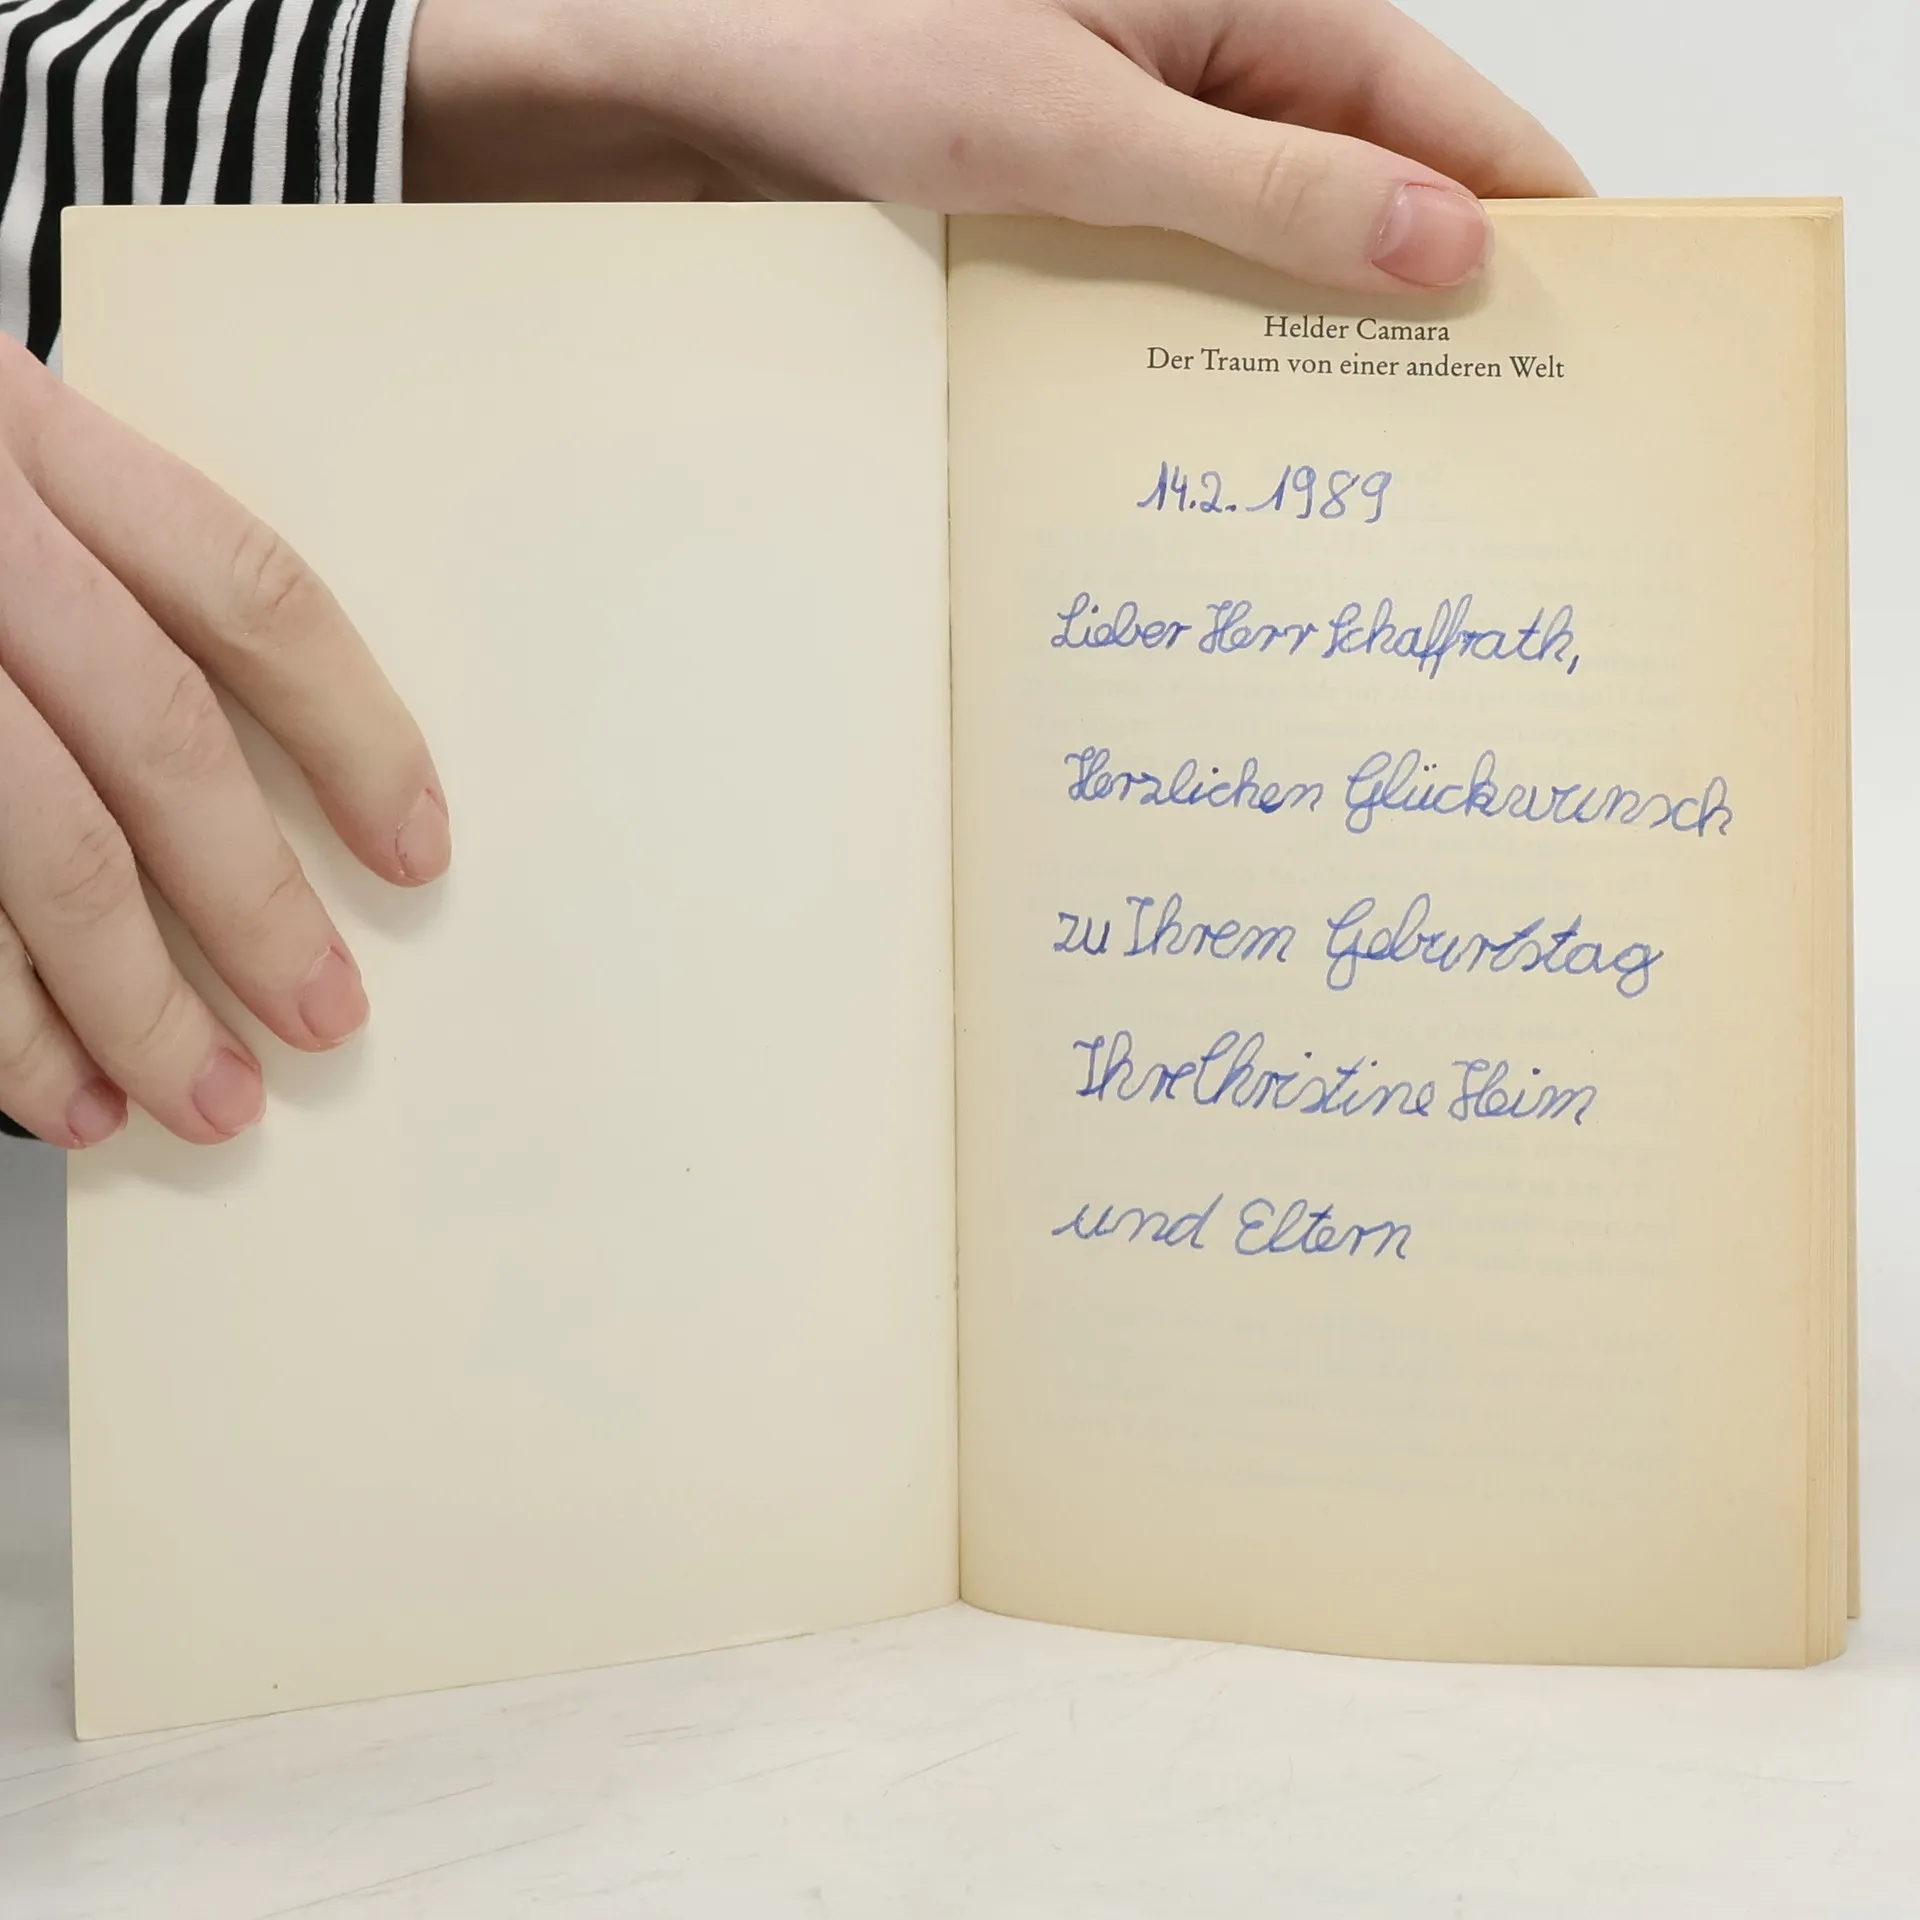 Helder Camara
Der Traum von einer anderen Welt
14.2. 1989
Lieber Herr Schaffrath,
Herzlichen Glückwunsch
zu Ihrem Geburtstag
Ihre Christine Heim
und Eltern